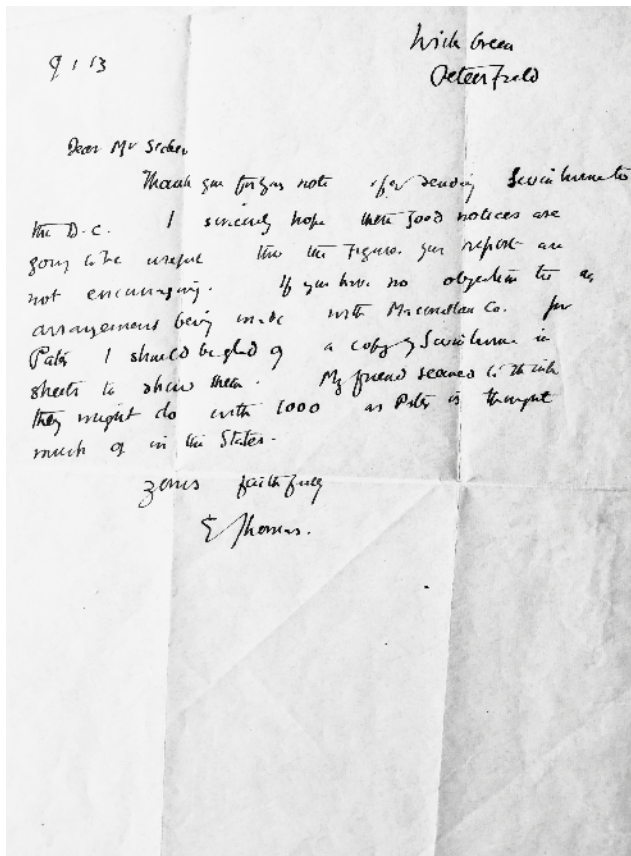 Wick Green
Petersfield
9 i 13
Dear Mr Secker
Thank you for your note & for sending Swinburne to
the D.C. I sincerely hope these good notices are
going to be useful tho the figures you report are
not encouraging. If you have no objection to an
arrangement being made with Macmillan Co. for
Pater I should be glad of a copy of Swinburne in
sheets to show them. My friend seemed to think
they might do with 1000 as Pater is thought
much of in the States.
Yours faithfully
E Thomas.